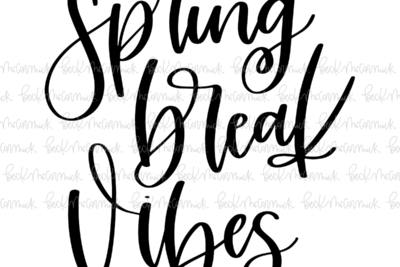 Spring
break
Vibes